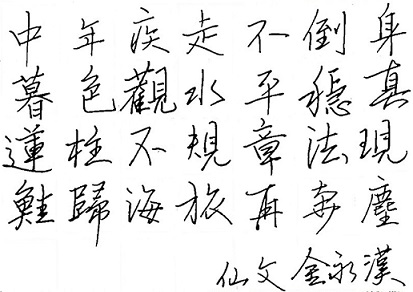 中年疾走不倒身
暮色觀水平穩真
蓮柱不規章法現
鮭歸海旅再奔塵
仙文金永漢